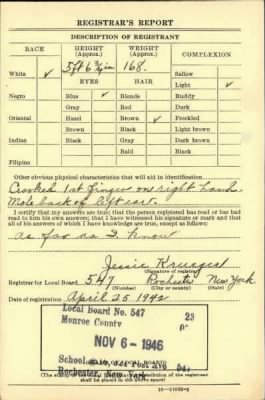 REGISTRAR'S REPORT
DESCRIPTION OF REGISTRANT
RACE
HEIGHT
(Approx.)
WEIGHT
(Approx.)
COMPLEXION
White ✓
5 ft 6 3/4 in
168.
Sallow
EYES
HAIR
Light ✓
Negro
Blue ✓
Blonde
Ruddy
Gray
Red
Dark
Oriental
Hazel
Brown ✓
Freckled
Brown
Black
Light brown
Indian
Black
Gray
Dark brown
Bald
Black
Filipino
Other obvious physical characteristics that will aid in identification
Crooked 1st finger on right hand.
Mole back of left ear.
I certify that my answers are true; that the person registered has read or has had
read to him his own answers; that I have witnessed his signature or mark and that
all of his answers of which I have knowledge are true, except as follows:
as far as I know
Jessie
(Signature of registrar)
Registrar for Local Board 547 Rochester New York
(Number) (City or county) (State)
Date of registration April 25 1942
Local Board No. 547
Monroe County
NOV 6 - 1946
School
Rochester, New York
shall be placed in the above space)